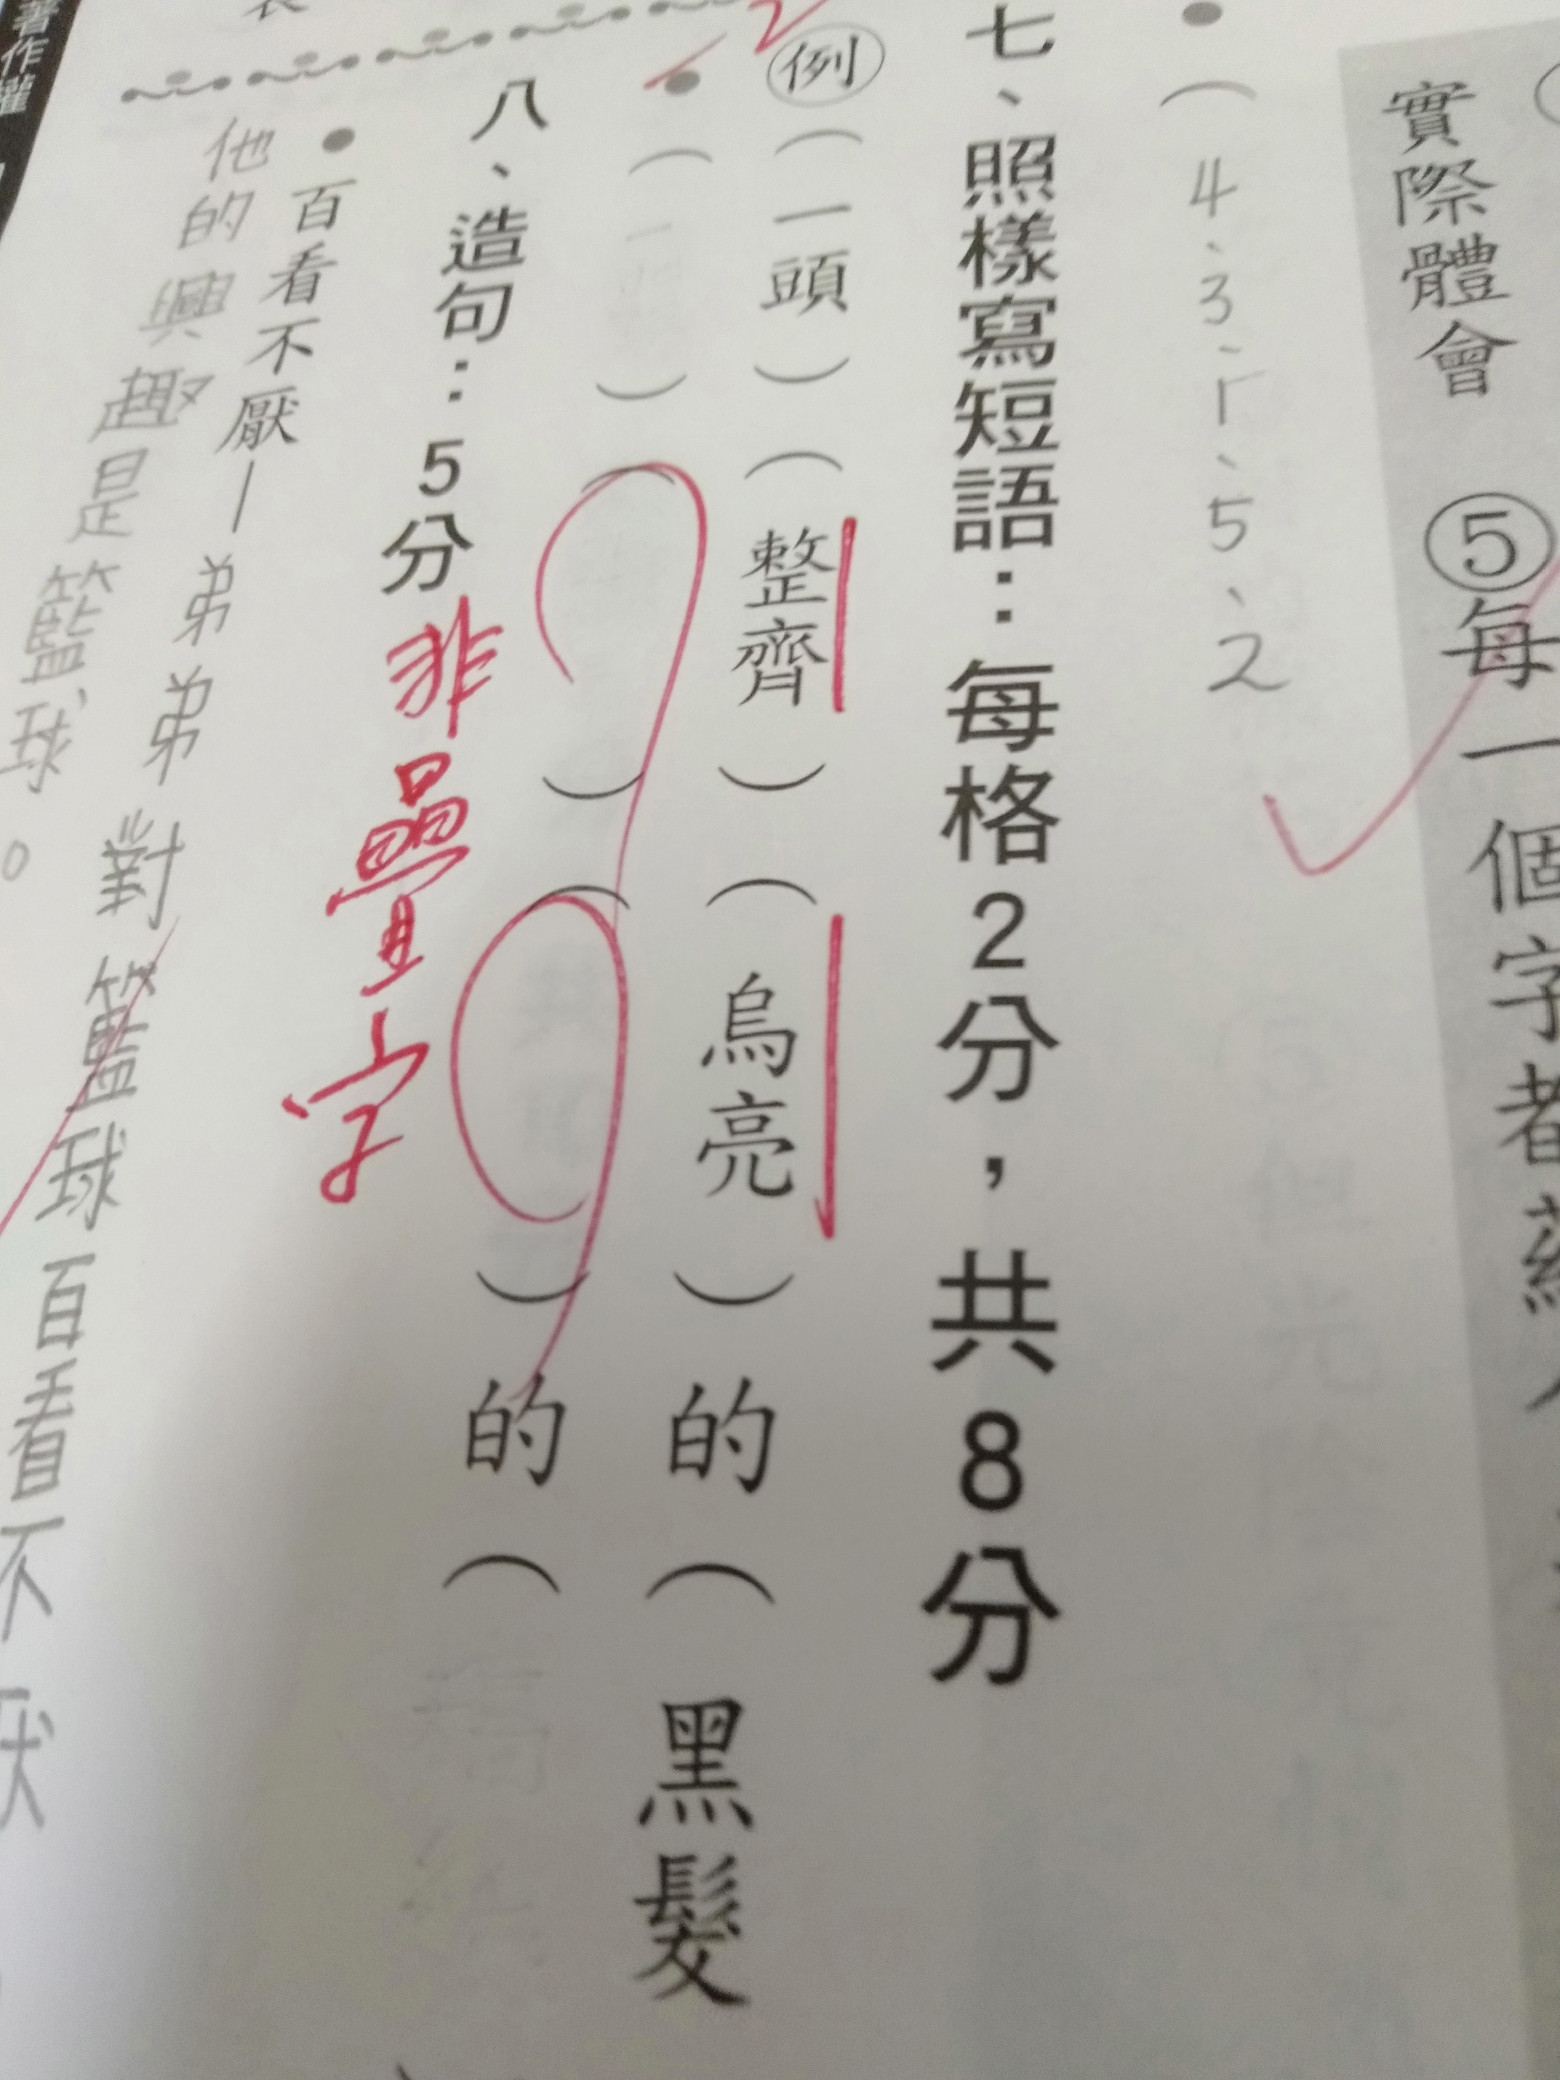 著作權
實際體會 ⑤每一個字都
( 4、3、1、5、2
七、照樣寫短語:每格2分,共8分
例(一頭)(整齊)(烏亮)的(黑髮
( )( )( )的(
八、造句:5分
非疊字
百看不厭—弟弟對籃球百看不厭
他的興趣是籃球。